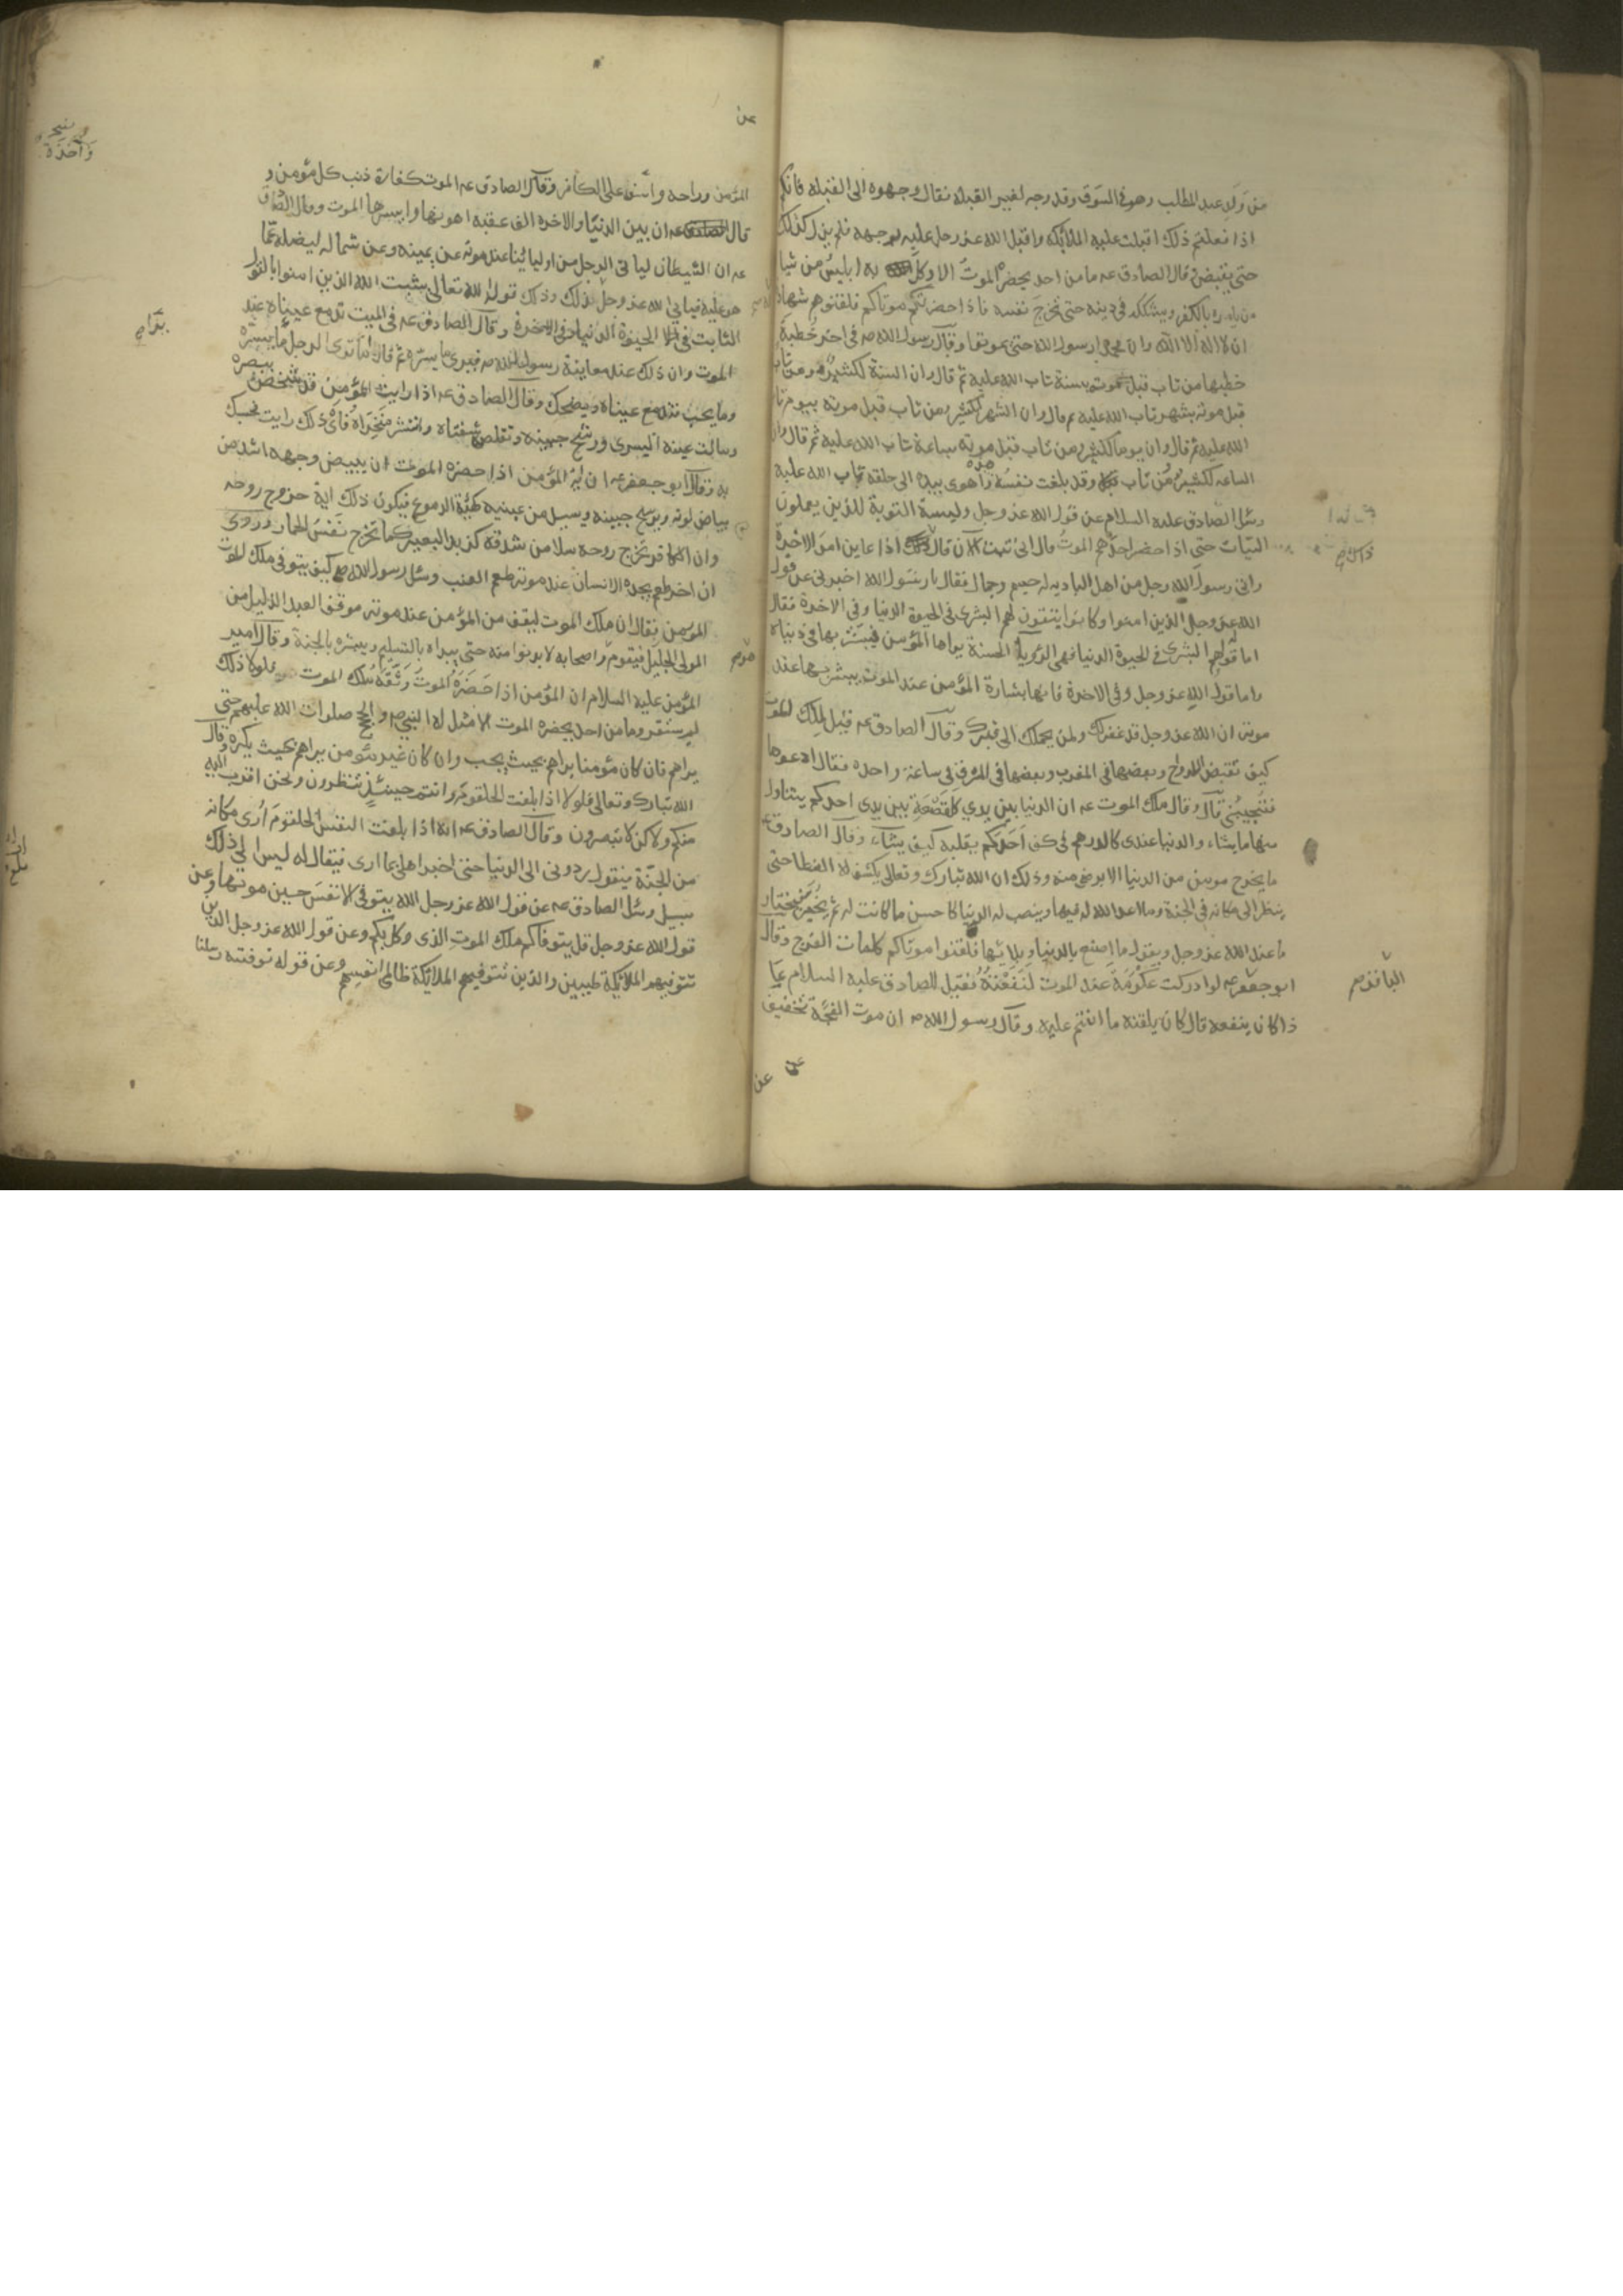 من ولد عبد المطلب وهو في السوق وقد وجه لغير القبلة فقال وجهوه الى القبلة فانكم
اذا فعلتم ذلك اقبلت عليه الملائكة واقبل الله عز وجل عليه بوجهه فلم يزل كذلك
حتى يقبض وقال الصادق عه ما من احد يحضره الموت الا وكل به ابليس من شيا
من يامره بالكفر ويشككه في دينه حتى تخرج نفسه فاذا حضرتم موتاكم فلقنوهم شهادة
ان لا اله الا الله وان محمدا رسول الله حتى يموتوا وقال رسول الله صه في اخر خطبة
خطبها من تاب قبل موته بسنة تاب الله عليه ثم قال وان السنة لكثير ومن تاب
قبل موته بشهر تاب الله عليه ثم قال وان الشهر لكثير ومن تاب قبل موته بيوم تا
الله عليه ثم قال وان يوما لكثير ومن تاب قبل موته بساعة تاب الله عليه ثم قال وان
الساعة لكثير من تاب وقد بلغت نفسه هذه واهوى بيده الى حلقه تاب الله عليه
وسئل الصادق عليه السلام عن قول الله عز وجل وليست التوبة للذين يعملون
السيات حتى اذا حضر احدهم الموت قال اني تبت الان قال ذلك اذا عاين امر الاخرة
واتى رسول الله رجل من اهل البادية له جسم وجمال فقال يا رسول الله اخبرني عن قول
الله عز وجل الذين امنوا وكانوا يتقون لهم البشرى في الحيوة الدنيا وفي الاخرة فقال
اما قوله لهم البشرى في الحيوة الدنيا فهي الرؤيا الحسنة يراها المؤمن فيبشر بها في دنياه
واما قول الله عز وجل وفي الاخرة فانها بشارة المؤمن عند الموت يبشر بها عند
موته ان الله عز وجل قد غفر لك ولمن يحملك الى قبرك وقال الصادق عه قيل لملك الموت
كيف تقبض الارواح وبعضها في المغرب وبعضها في المشرق في ساعة واحدة فقال ادعوها
فتجيبني قال وقال ملك الموت عه ان الدنيا بين يدي كالقصعة بين يدي احدكم يتناول
منها ما يشاء والدنيا عندي كالدرهم في كف احدكم يقلبه كيف يشاء وقال الصادق عه
ما يخرج مومن من الدنيا الا برضى منه وذلك ان الله تبارك وتعالى يكشف له الغطا حتى
ينظر الى مكانه في الجنة وما اعد الله له فيها وينصب له الدنيا كاحسن ما كانت له ثم يخير فيختار
ما عند الله عز وجل ويقول ما اصنع بالدنيا وبلائها فلقنوا موتاكم كلمات الفرج وقال
ابو جعفر عه لو ادركت عكرمة عند الموت لنفعته فقيل للصادق عليه السلام بما
ذا كان ينفعه قال كان يلقنه ما انتم عليه وقال رسول الله صه ان موت الفجأة تخفيف
عن
المؤمن وراحه واسف على الكافر وقال الصادق عه الموت كفارة ذنب كل مؤمن و
قال عه ان بين الدنيا والاخرة الف عقبة اهونها وايسرها الموت وقال الصادق
عه ان الشيطان لياتي الرجل من اوليائنا عند موته عن يمينه وعن شماله ليضله عما
هو عليه فيابى الله عز وجل ذلك وذلك قول الله تعالى يثبت الله الذين امنوا بالقول
الثابت في الحيوة الدنيا وفي الاخرة وقال الصادق عه في الميت تدمع عيناه عند
الموت وان ذلك عند معاينة رسول الله صه فيرى ما يسره ثم قال اما ترى الرجل ما يسره
وما يحب فتدمع عيناه ويضحك وقال الصادق عه اذا رايت المؤمن قد شخص ببصره
وسالت عينه اليسرى ورشح جبينه وتقلصت شفتاه وانتشر منخراه فاي ذلك رايت فحسبك
به وقال ابو جعفر عه ان اية المؤمن اذا حضره الموت ان يبيض وجهه اشد من
بياض لونه ويرشح جبينه ويسيل من عينيه كهيئة الدموع فيكون ذلك اية خروج روحه
وان الكافر تخرج روحه سلا من شدقه كزبد البعير كما تخرج نفس الحمار وروى
ان اخر طعم يجده الانسان عند موته طعم العنب وسئل رسول الله صه كيف يتوفى ملك الموت
المؤمن فقال ان ملك الموت ليقف من المؤمن عند موته موقف العبد الذليل من
المولى الجليل فيقوم واصحابه لا يدنوا منه حتى يبداه بالتسليم ويبشره بالجنة وقال امير
المؤمن عليه السلام ان المؤمن اذا حضره الموت وثقه ملك الموت فلولا ذلك
لم يستقر وما من احد يحضره الموت الا مثل له النبي ص والحجج صلوات الله عليهم حتى
يراهم فان كان مؤمنا يراهم بحيث يحب وان كان غير مؤمن يراهم بحيث يكره وقال
الله تبارك وتعالى فلولا اذا بلغت الحلقوم وانتم حينئذ تنظرون ونحن اقرب اليه
منكم ولاكن لا تبصرون وقال الصادق عه انه اذا بلغت النفس الحلقوم ارى مكانه
من الجنة فيقول ردوني الى الدنيا حتى اخبر اهلي بما ارى فيقال له ليس الى ذلك
سبيل وسئل الصادق عه عن قول الله عز وجل الله يتوفى الانفس حين موتها وعن
قول الله عز وجل قل يتوفاكم ملك الموت الذي وكل بكم وعن قول الله عز وجل الذين
تتوفيهم الملائكة طيبين والذين تتوفيهم الملائكة ظالمي انفسهم وعن قوله توفته رسلنا